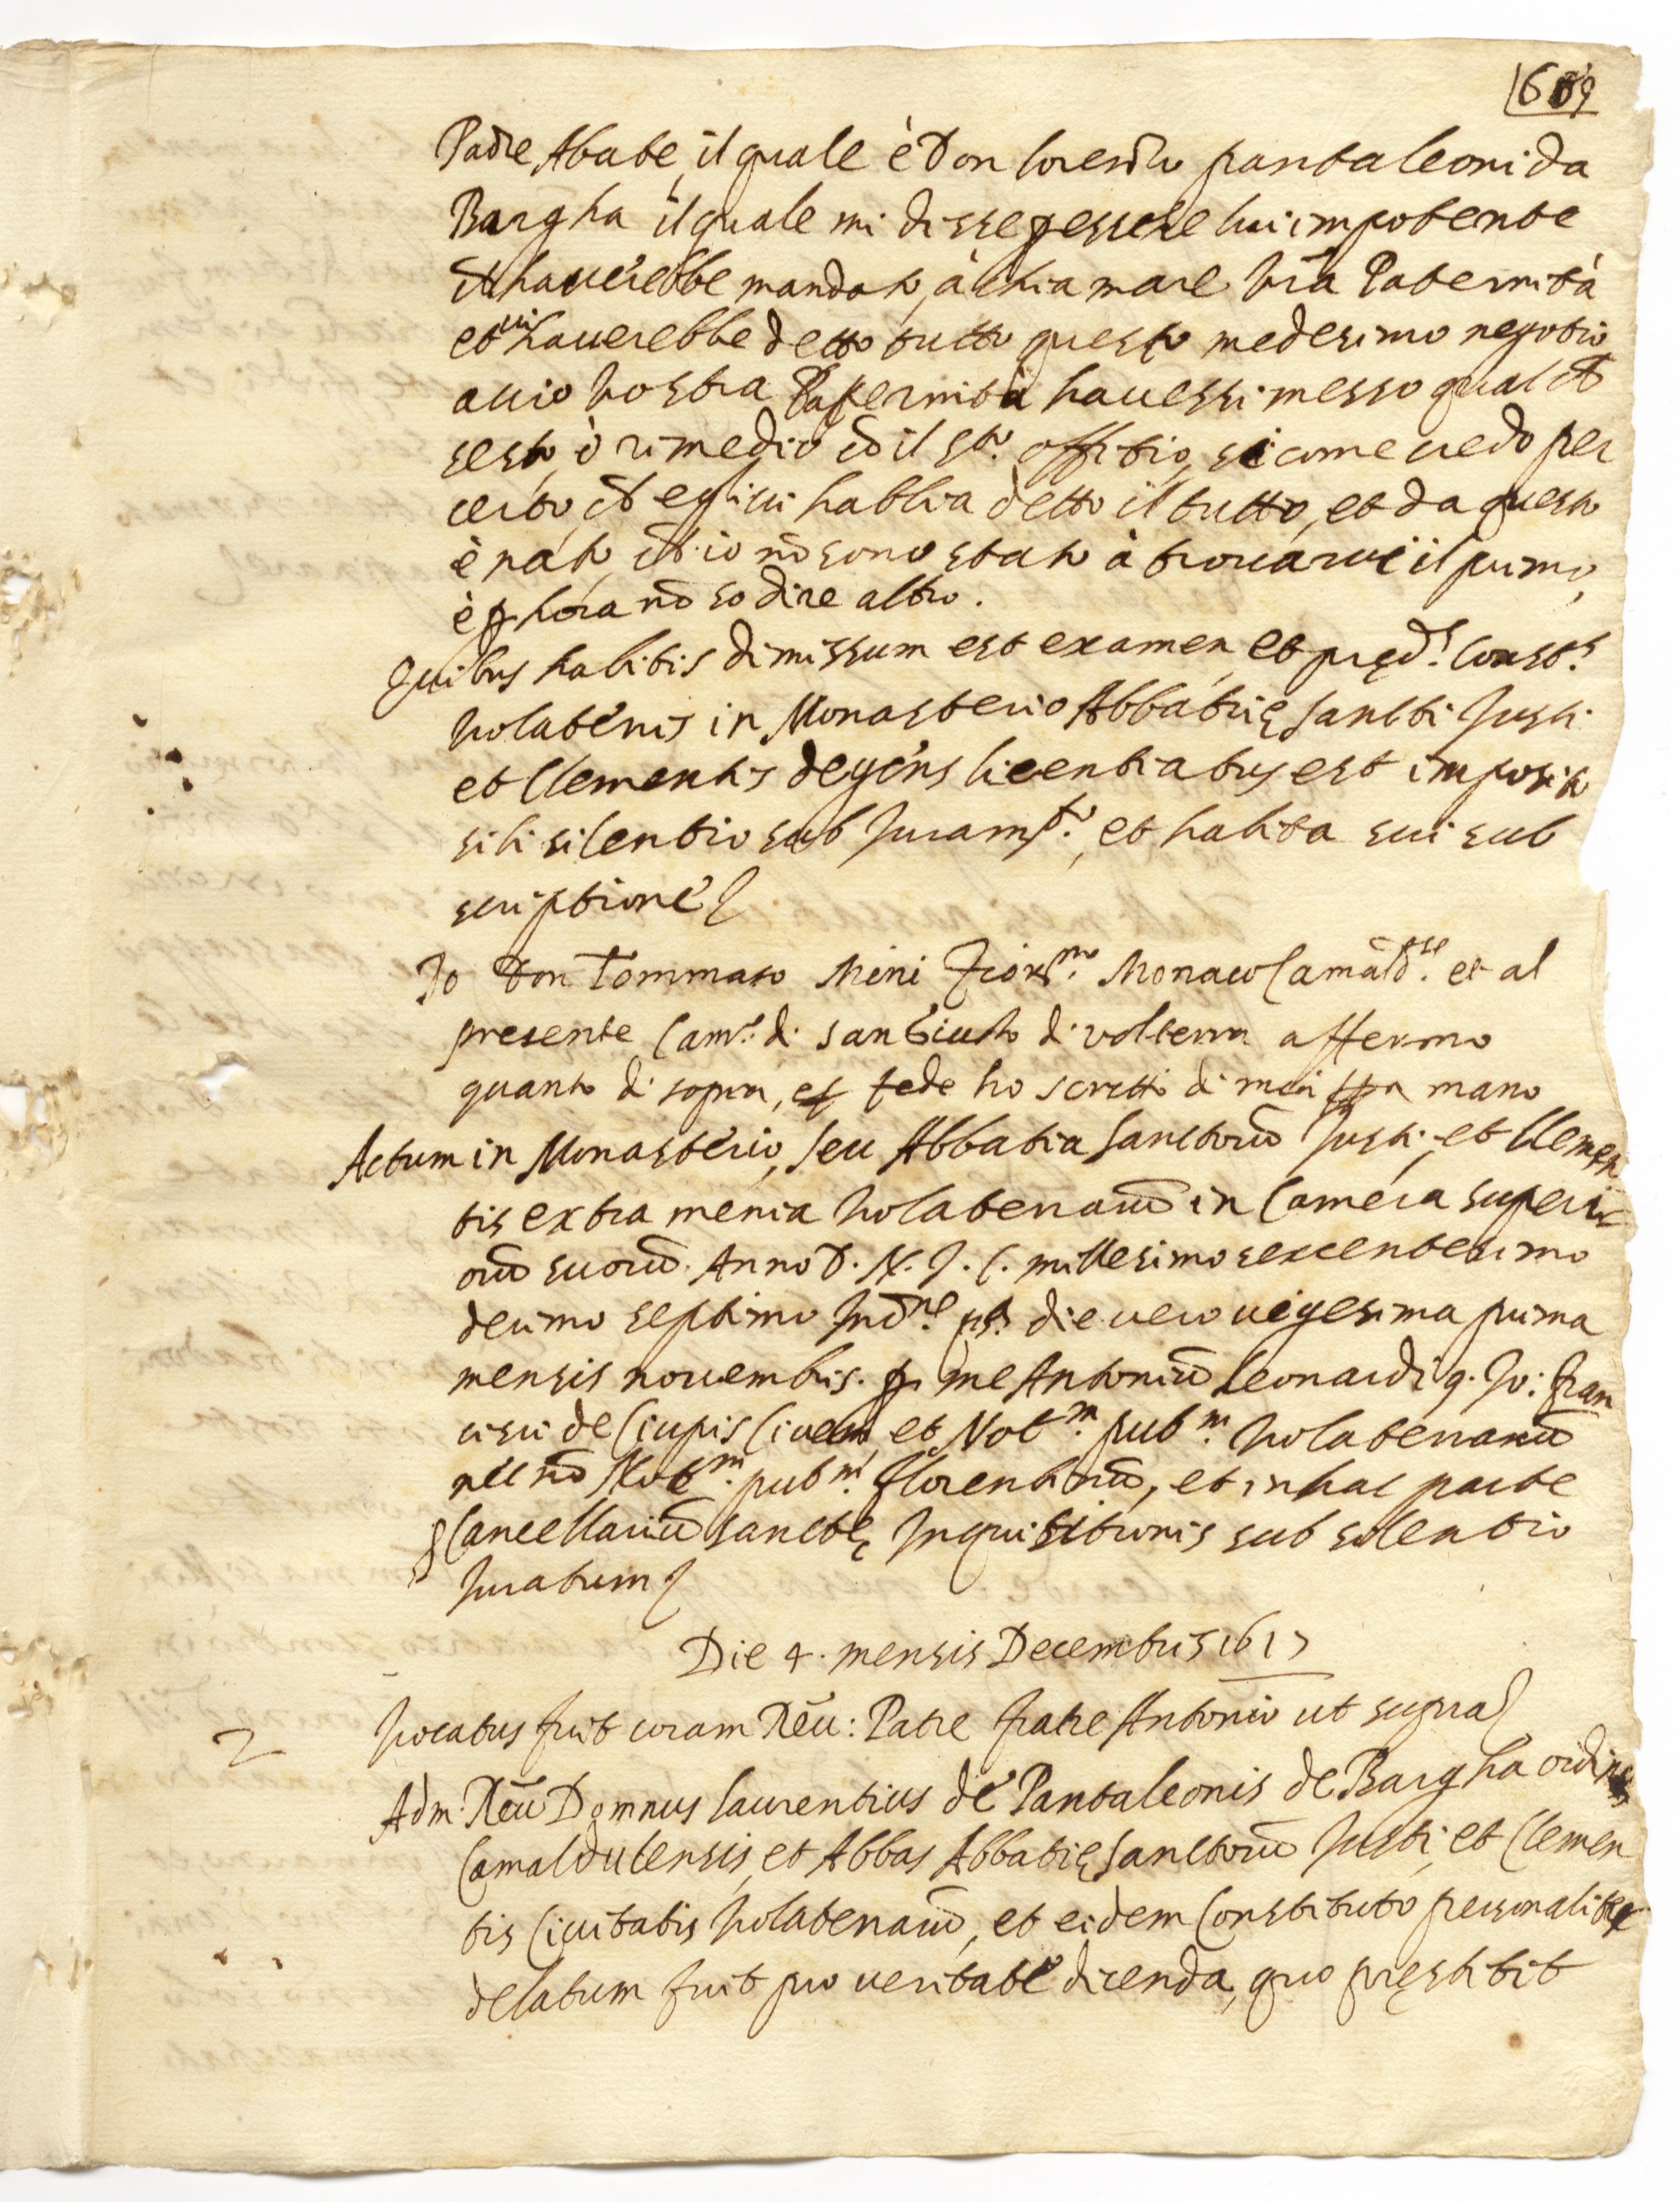 609
Padre Abate, il quale è Don lorenzo pantaleoni da
Bargha il quale mi disse p essere lui impotente
ch haverebbe mandato, à chiamare Vrã Paternità
et vi haverebbe detto tutto questo medesimo negotio
acciò Vostra Paternità havessi messo qualch
sesto, ò rimedio cõ il sto. offitio, sicome credo per
certo, ch egli vi habbia detto il tutto, et da questo
è nato, ch io nõ sono stato à trovarvi il primo,
è p hora nõ so dire altro.
Quibus habitis dimissum est examen, et pręds. Const.s
Volaterris in Monasterio Abbatię Sancti Justi
et Clementis degens licentiatus est imposito
sibi silentio sub Juramto., et habita sui sub
scriptione
Jo Don Tommaso Mini Fiorno. Monaco Camaldse. et al
presente Camo. di San Giusto di volterra affermo
quanto di sopra, et fede ho scritto di mia mano
Actum in Monasterio, seu Abbatia Sanctorũ Justi, et Clemen
tis extra menia Volaterrarũ in Camera superi
orũ suorũ. Anno D. N. J. C. millesimo sexcentesimo
decimo septimo Indne. die vero vigesima prima
mensis novembris. p me Antoniũ Leonardi q. Jo: fran
cisci de Ciupis Civem, et Notm. pubm. Volaterranũ
nec nõ Notm. pubm. florentinũ, et in hac parte
Cancellariũ Sanctę Inquisitionis sub silentio
Juratum
Die 4. mensis Decembris 1617
2 Vocatus fuit coram Reũ: Patre fratre Antonio ut supra
Adm. Reũ Domnus Laurentius de Pantaleonis de Bargha ordinis
Camaldulensis, et Abbas Abbatię Sanctorũ Justi, et Clemen
tis Civitatis Volaterrarũ, et eidem Constituto personaliter
delatum fuit pro veritate dicenda, quo pręstitit